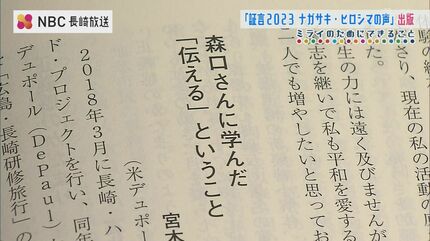 NBC長崎放送
「証言2023 ナガサキ・ヒロシマの声」出版
ミライのためにできること
さり、現在の私の活動の
生の力には遠く及びませんが
志を継いで私も平和を愛する
二人でも増やしたいと思ってお
森口さんに学んだ
「伝える」ということ
宮木
(米デュポール
2018年3月に長崎・ハ
ド・プロジェクトを行い、同年
デュポール(DePaul)
「広島・長崎研修旅行」の